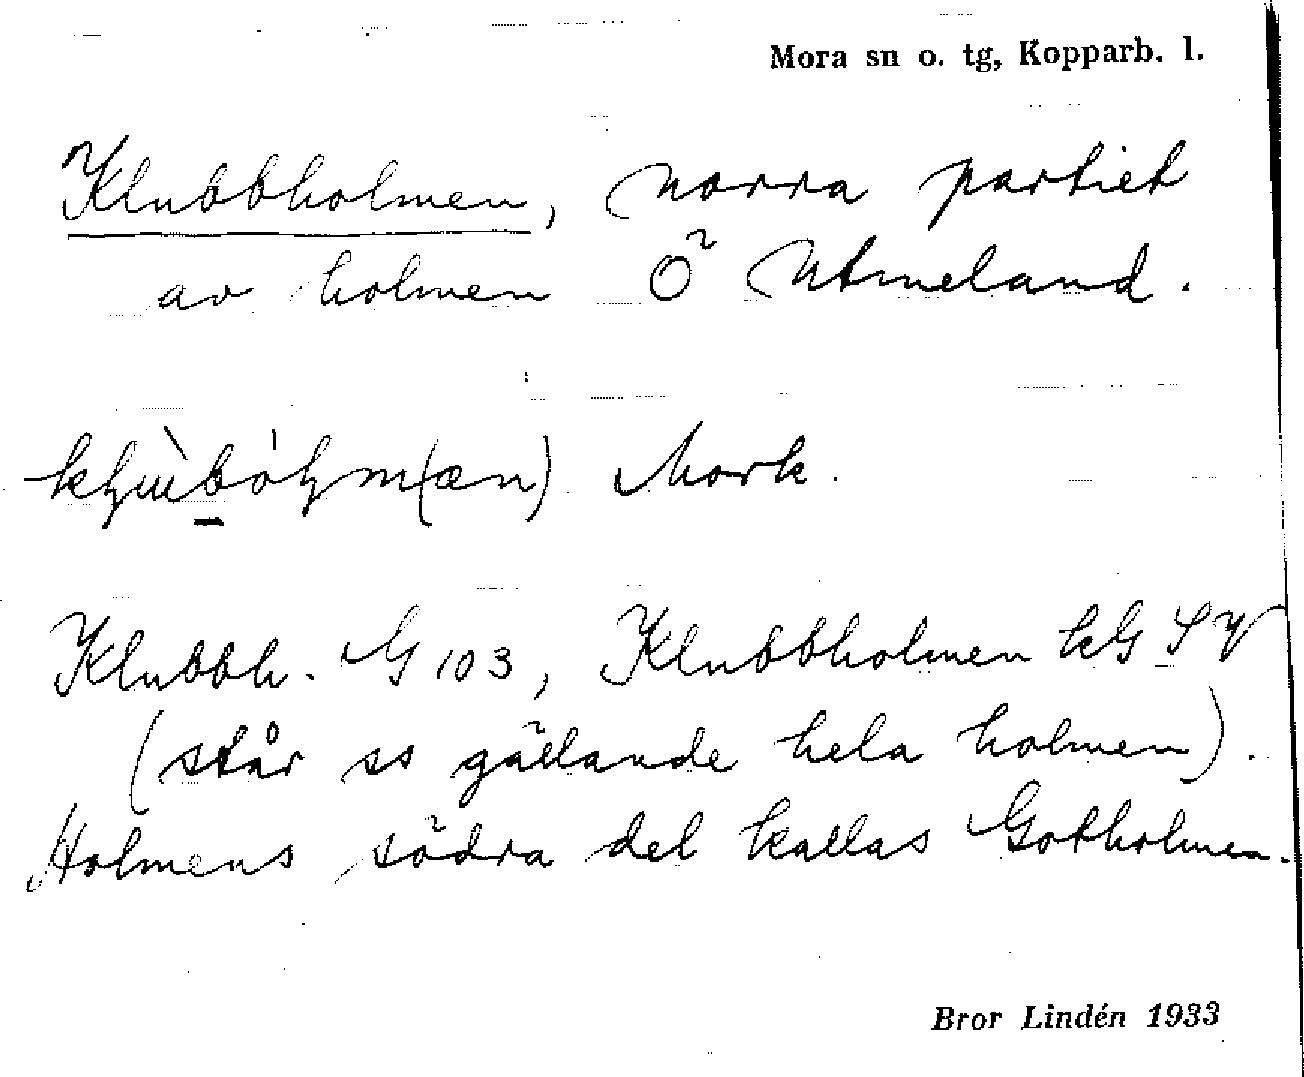 Mora sn o. tg, Kopparb. l.
Klubbholmen, norra partiet
av holmen Ö Utmeland.
Mork.
Klubbh. G 103, Klubbholmen kG SV
(står ss gällande hela holmen).
Holmens södra del kallas Gotholmen.
Bror Lindén 1933